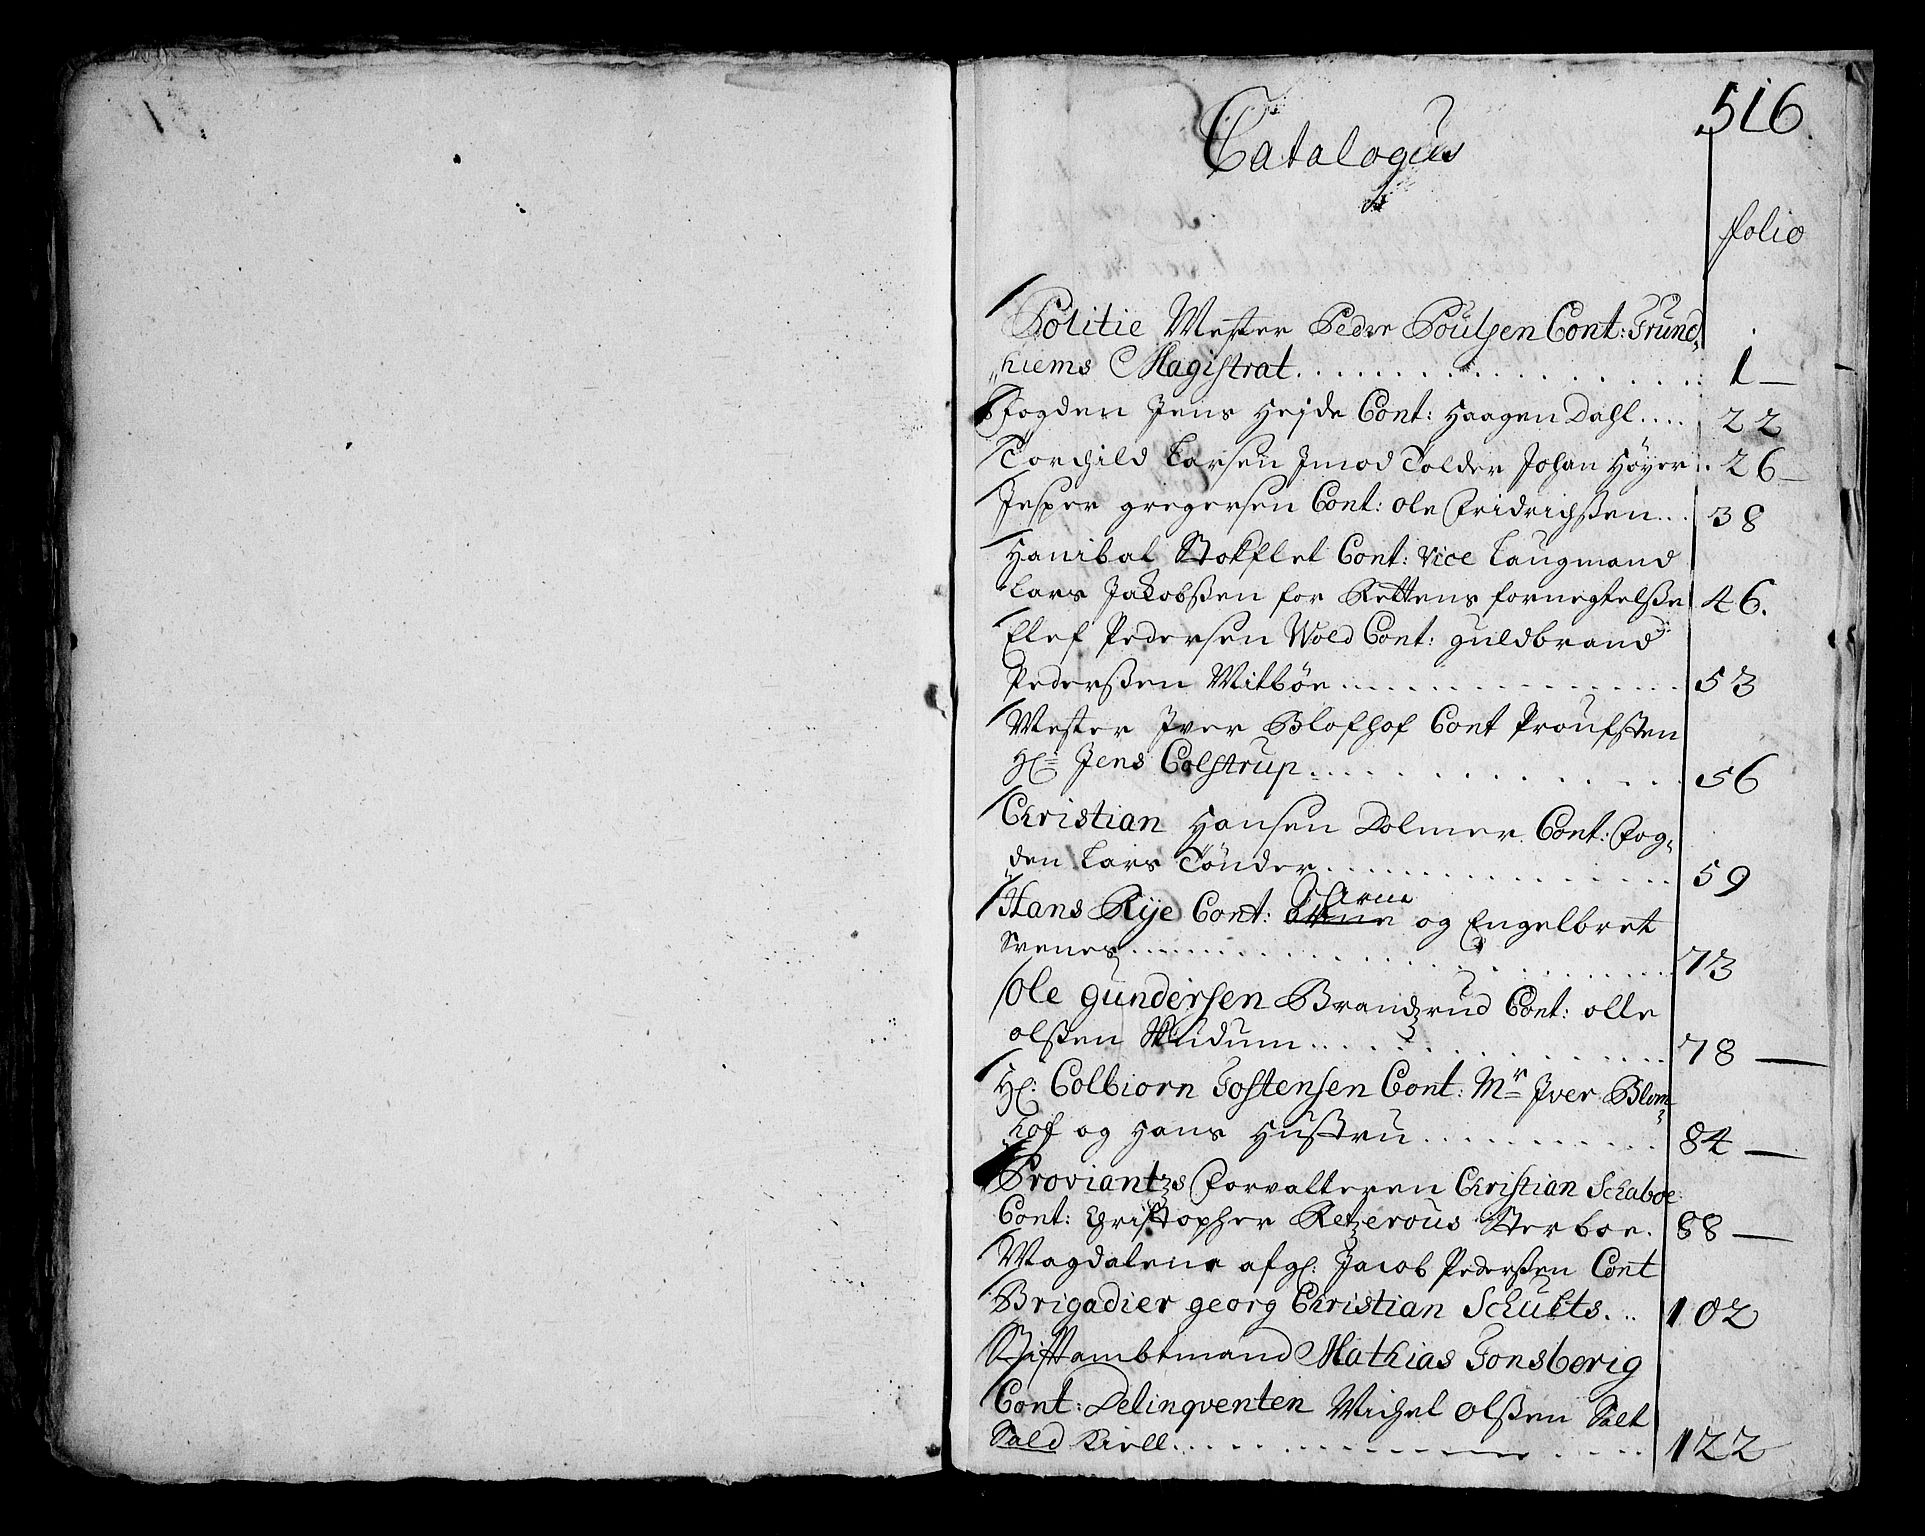 516
Catalogus
folio
Politie Mester Peder Poulsen Cont: Trund„
„hiems Magistrat . . . . . 1 —
Fogden Jens Hejde Cont: Haagen Dahl . . . . 22
Torchild Larsen Jmod Tolder Johan Höyer . . 26 —
Jesper gregersen Cont: Ole Fridrichsen . . . 38
Hanibal Stokflet Cont: Vice Laugmand
Lars Jacobsen for Rettens fornegtelse 46.
Elef Pedersen Wold Cont: Guldbrand
Pedersen Mitböe . . . . . 53
Mester Jver Cont Proufsten
Hr= Jens Colstrup . . . . . 56
Christian Hansen Dolmer Cont: Fog„
„den Lars Tönder . . . . . 59
Hans Rÿe Cont: Arne og Engelbret
Svenes . . . . . 73
Ole Gundersen Brandzrud Cont: Olle
olsen . . . . . 78 —
Hr: Colbiorn Tostensen Cont: Mr Jver Blom„
hof og Hans Hustru . . . . . 84 —
Proviantzs Forvalteren Christian Schaboe
Cont: Christopher Sterboe . 88 —
Magdalene afgl: Jacob Pedersen Cont
Brigadier georg Christian Schults . . . 102
Stiftambtmand Mathias Tonsberig
Cont: Delinqventen Michel Olsen Salt
Sald Kiell . . . . . 122